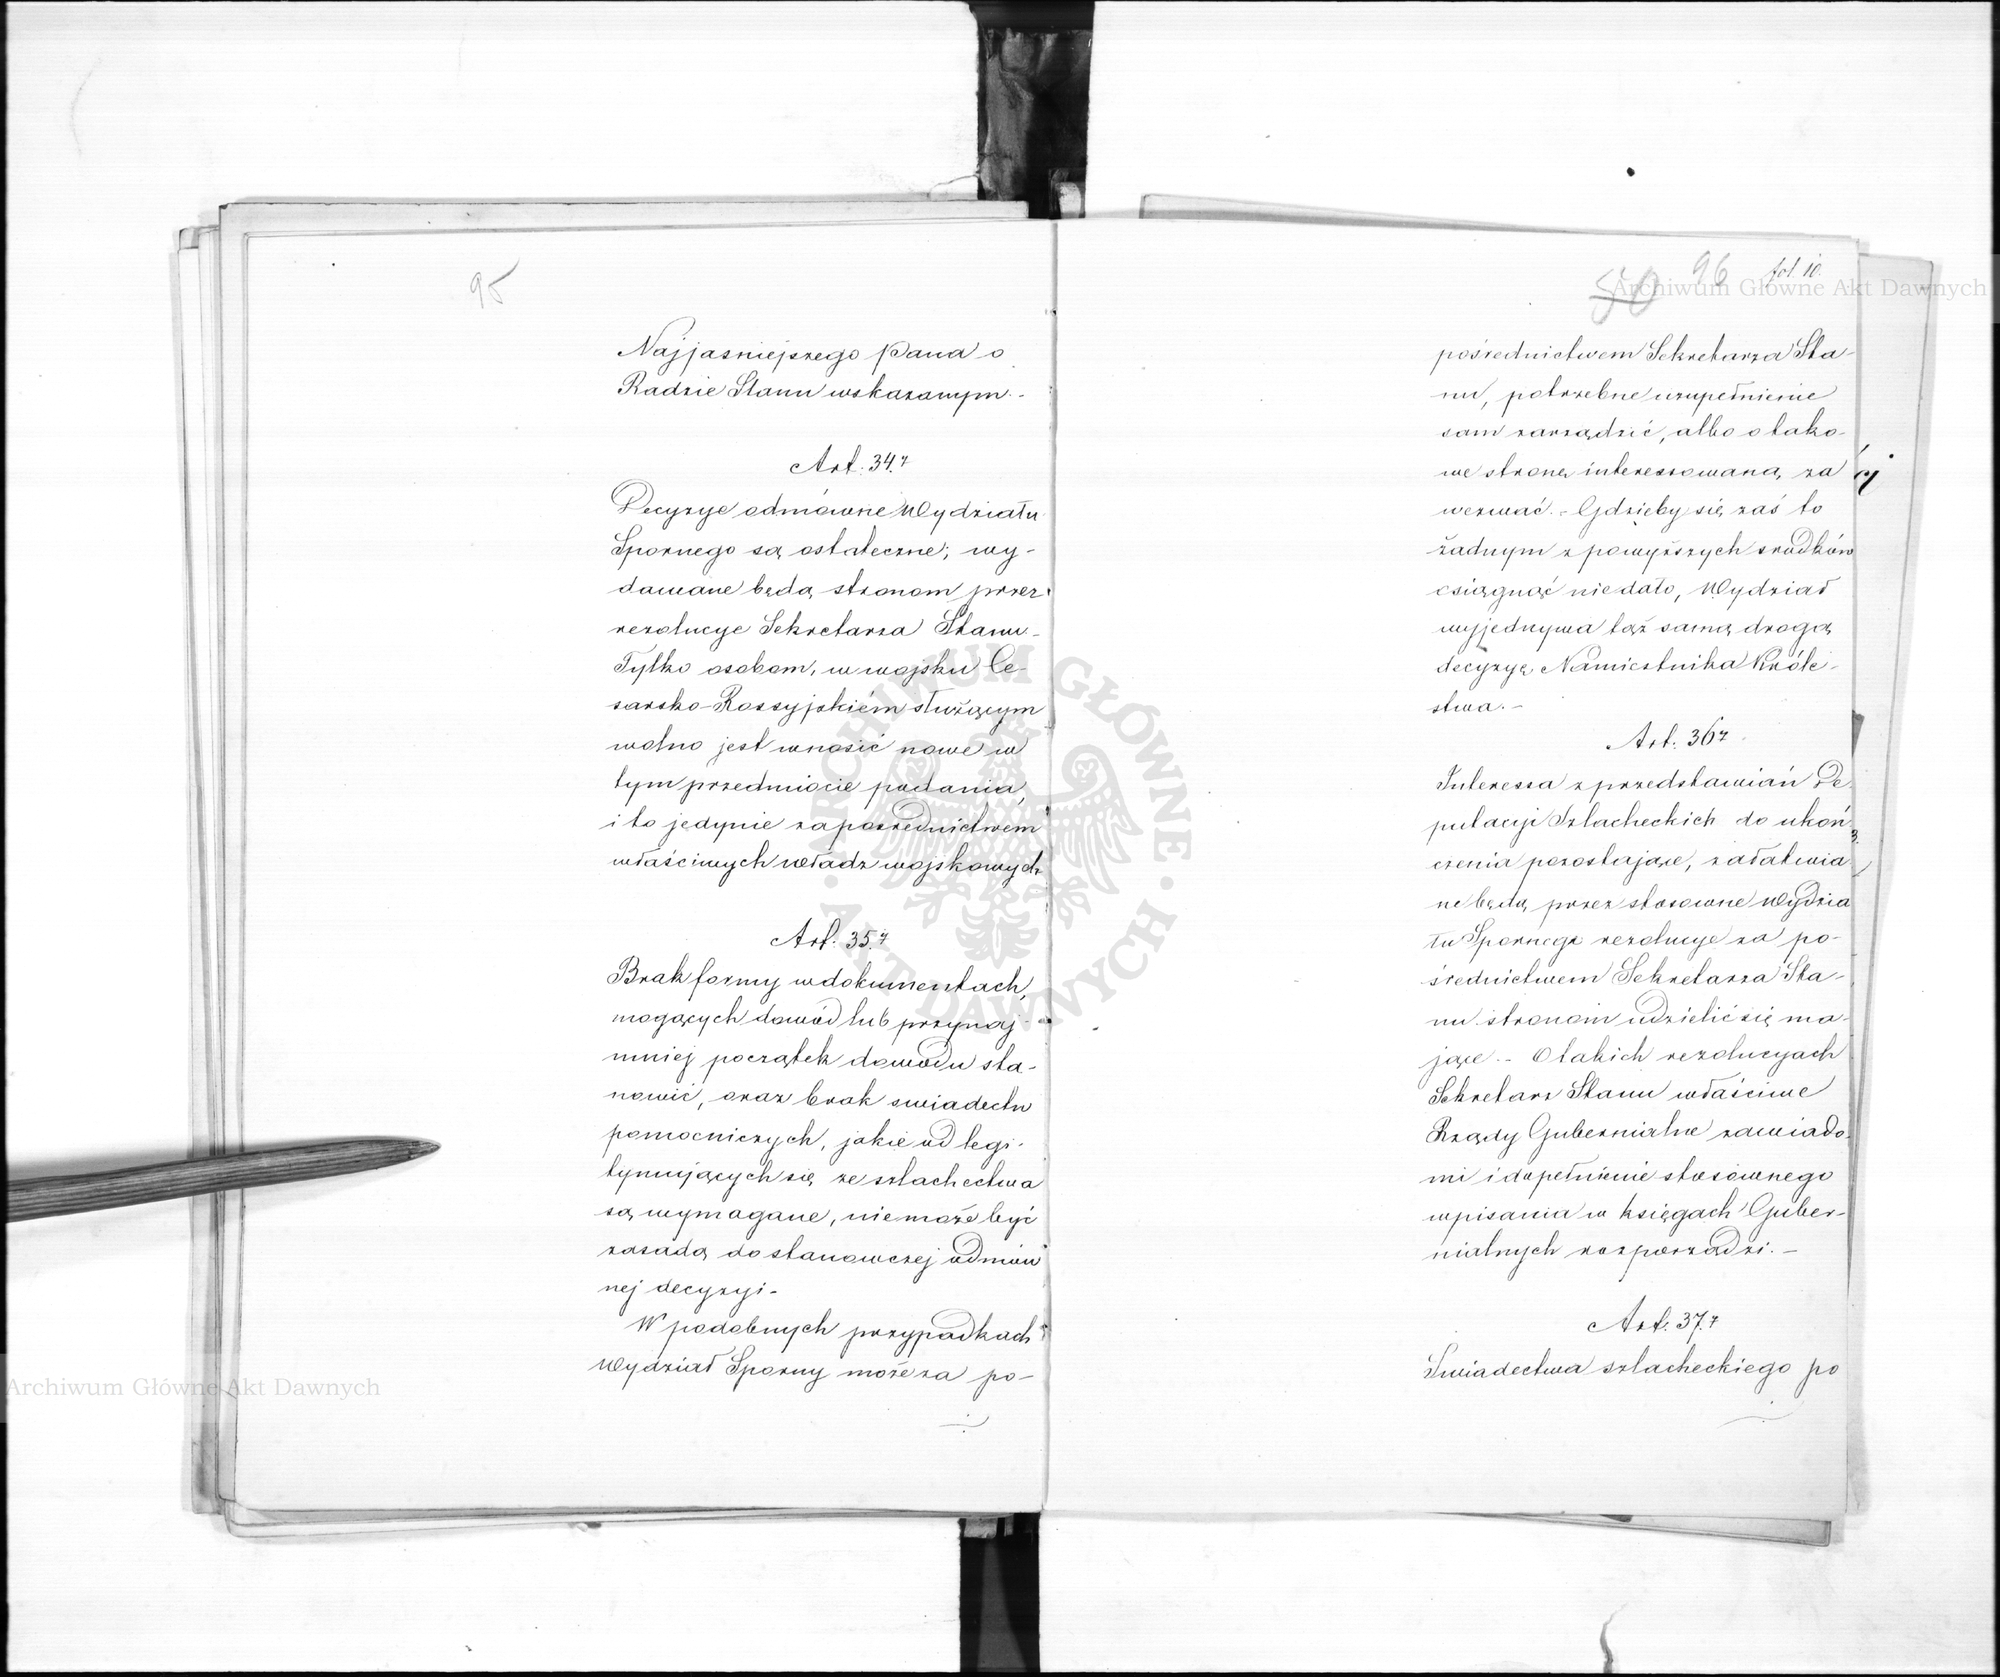 95
Najjasniejszego Pana o
Radzie Stanu wskazanym.-
Art. 34.
Decyzye odmówne Wydziału
Spornego są ostateczne; wy-
dawane będą stronom przez
rezolucye Sekretarza Stanu.
Tylko osobom, w wojsku Ce-
sarsko-Rossyjskiém służącym
wolno jest wnosić nowe w
tym przedmiocie podania,
i to jedynie za pośrednictwem
właściwych władz wojskowych
Art. 35.
Brak formy w dokumentach,
mogących dowód lub przynaj-
mniej początek dowodu sta-
nowić, oraz brak świadectw
pomocniczych, jakie od legi-
tymujących się ze szlachectwa
są wymagane, nie może być
zasadą do stanowczej odmów
nej decyzyi-
W podobnych przypadkach
Wydział Sporny może za po-
50 96 fol. 10.
pośrednictwem Sekretarza Sta-
nu, potrzebne uzupełnienie
sam zarządzić, albo o tako-
we stronę interessowaną za
wezwać.- Gdzieby się zaś to
żadnym z powyższych srodków
osiągnąć nie dało, Wydział
wyjednywa tąż samą drogą
decyzyę Namiestnika Króle-
stwa.-
Art. 36
Interessa z przedstawień De-
putacyi Szlacheckich do ukoń-
czenia pozostające, załatwia
ne będą przez stosowne Wydzia
łu Spornego rezolucye za po-
średnictwem Sekretarza Sta-
nu stronom udzielić się ma-
jące.- O takich rezolucyach
Sekretarz Stanu właściwe
Rządy Gubernialne zawiado-
mi i dopełnienie stosownego
wpisania w księgach Guber-
nialnych rozporządzi.-
Art. 37.
Świadectwa szlacheckiego po
Archiwum Główne Akt Dawnych
Archiwum Główne Akt Dawnych
ARCHIWUM GŁÓWNE AKT DAWNYCH